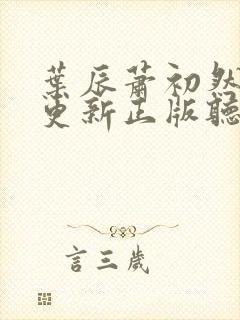 葉辰蕭初然
更新正版聽
言三歲